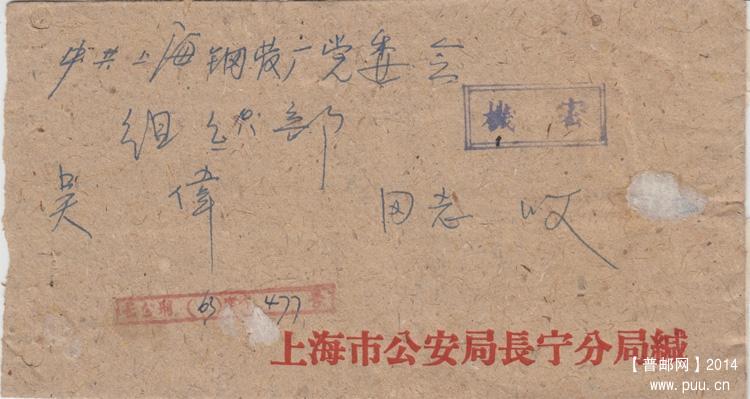 中共上海钢管厂党委会
機密
组织部
吴偉 同志 收
(63) 477 号
上海市公安局長宁分局緘
【普邮网】2014
www.puu.cn